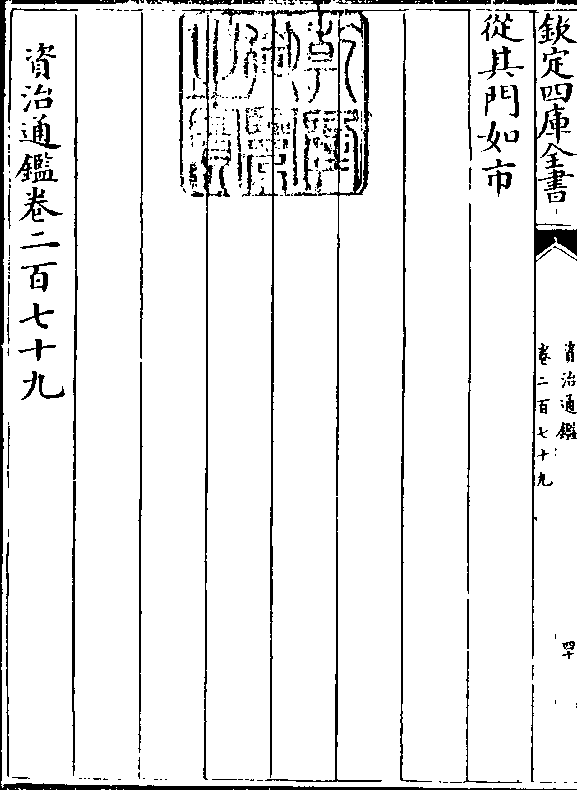 欽定四庫全書
資治通鑑
卷二百七十九
四十
從其門如市
資治通鑑卷二百七十九